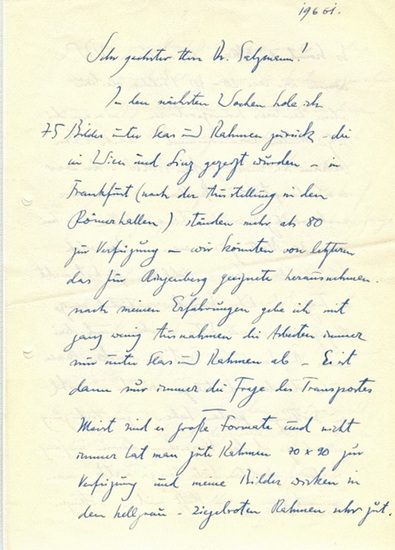 19661.
Sehr geehrter Herr Dr. Salzmann!
In den nächsten Wochen hole ich
75 Bilder unter Glas und Rahmen zurück – die
in Wien und Linz gezeigt wurden – in
Frankfurt (nach der Ausstellung in den
Römerhallen) stünden mehr als 80
zur Verfügung – wir könnten von letzteren
das für geeignete herausnehmen.
nach meinen Erfahrungen gebe ich mit
ganz wenig Ausnahmen die Arbeiten immer
nur unter Glas und Rahmen ab – Es ist
dann nur immer die Frage des Transportes
Meist sind es große Formate und nicht
immer hat man gute Rahmen 70 x 90 zur
Verfügung und meine Bilder wirken in
den hellgrau – ziegelroten Rahmen sehr gut.